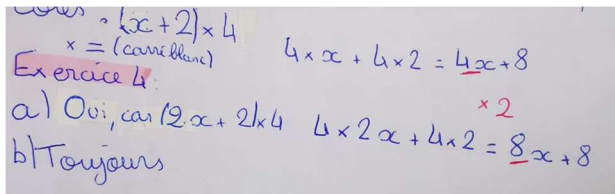 (x+2)×4
x = (carré blanc)
4×x + 4×2 = 4x+8
Exercice 4:
a) Oui, car (2x+2)×4 4×2x+4×2 = 8x+8
×2
b) Toujours